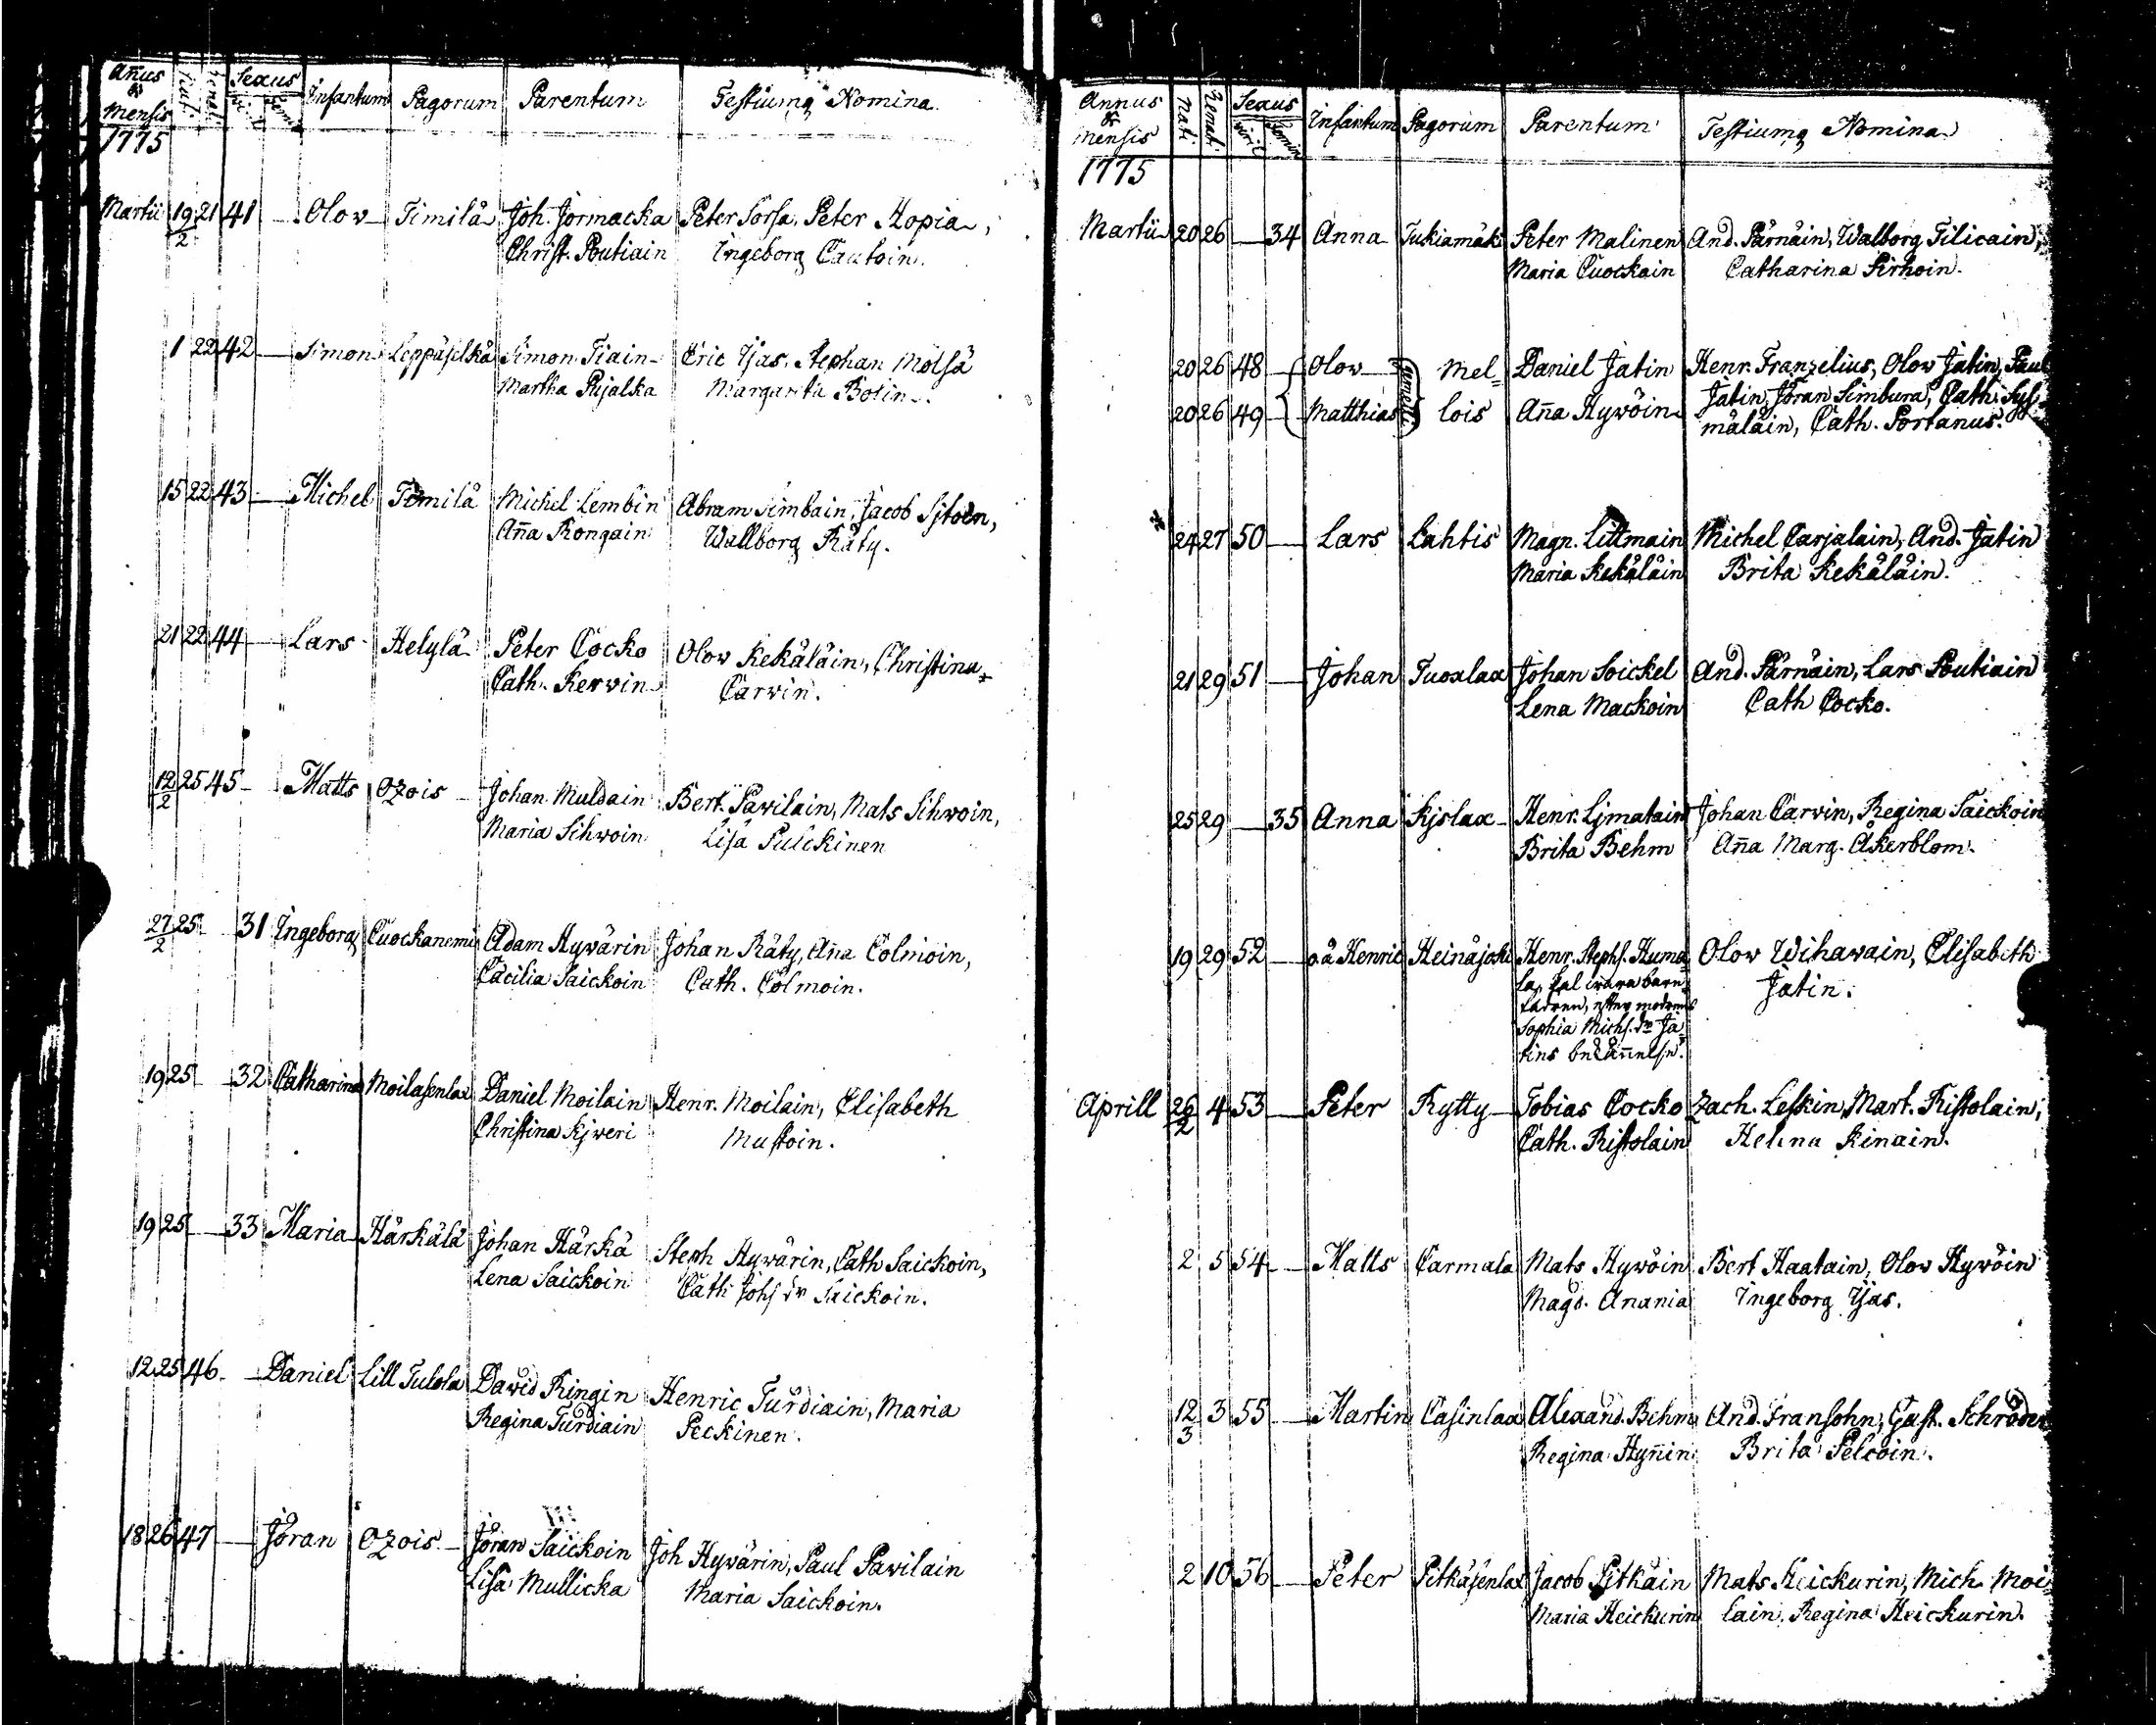 Añus & Mensis Nati Renati Sexus Infantum Pagorum Parentum Testiumq Nomina
viril femin
1775
Martii 19/2 21 41 — Olov Timilä Joh. Jormacka Peter Sorsa, Peter Hopia,
Christ. Poutiain Ingeborg Cautoin.
1 22 42 — Simon Leppäselkä Simon Tiain Eric Ijas, Stephan Mölsä
Martha Pujalka Margareta Bolin.
15 22 43 — Michel Tomilä Michel Lembin Abram Simbain, Jacob
Aña Rongain Wallborg Räty.
21 22 44 — Lars Helylä Peter Cocko Olov Kekäläin, Christina
Cath. Kervin Carvin.
12/2 25 45 — Matts Ozois Johan Muldain Bert. Pavilain, Mats Sihwoin,
Maria Sihwoin Lisa Pulckinen
27/2 25 — 31 Ingeborg Cuockanemi Adam Hyvärin Johan Räty, Aña Colmoin,
Cäcilia Saickoin Cath. Colmoin.
19 25 — 32 Catharina Moilasenlax Daniel Moilain Henr. Moilain, Elisabeth
Christina Kjweri Mustoin.
19 25 — 33 Maria Härkälä Johan Härkä Steph Hyvärin, Cath Saickoin,
Lena Saickoin Cath Johs dr Saickoin.
12 25 46 — Daniel Lill Tulola David Ringin Henric Turdiain, Maria
Regina Turdiain Peckinen.
18 26 47 — Jöran Ozois Jöran Saickoin Joh Hyvärin, Paul Pavilain
Lisa Mullicka Maria Saickoin.
Annus & Mensis Nati Renati Sexus Infantum Pagorum Parentum Testiumq Nomina
viril femin
1775
Martii 20 26 — 34 Anna Tukiamäki Peter Malinen And. Pärnäin, Walborg Tilicain,
Maria Cuockain Catharina Sirhoin.
20 26 48 — Olov Mel= Daniel Jatin Henr. Franzelius, Olov Jatin, Paul
gemelli
20 26 49 — Matthias lois Aña Hyvöin Jatin, Jöran Simbura, Cath. Syl=
mäläin, Cath. Portanus.
24 27 50 — Lars Lahtis Magn. Littmain Michel Carjalain, And. Jatin
Maria Kekäläin Brita Kekäläin.
21 29 51 — Johan Tuoxlax Johan Soickel And. Pärnäin, Lars Poutiain
Lena Mackoin Cath Cocko.
25 29 — 35 Anna Kjslax Henr. Ljmatain Johan Carvin, Regina Saickoin
Brita Behm Aña Marg. Åkerblom.
19 29 52 — o.ä Henric Heinäjoki Henr. Stephs. Huma= Olov Wihavain, Elisabeth
la, sal wara barn= Jatin.
fadren, efter modrens
Sophia Michs. dr Ja
tins bekännelse.
Aprill 26/2 4 53 — Peter Rytty Tobias Cocko Zach. Leskin, Mart. Ristolain,
Cath. Ristolain Helena Kinain.
2 5 54 — Matts Carmala Mats Hyvöin Bert Haatain, Olov Hyvöin
Magd. Anania Ingeborg Ijas.
12/3 3 55 — Martin Casinlax Alexand. Behm And. Fransohn, Gust. Schröder
Regina Hyñin Brita Pelcoin.
2 10 56 — Peter Pitkäsenlax Jacob Pitkäin Mats Heickurin, Mich. Moi=
Maria Heickurin lain, Regina Heickurin.